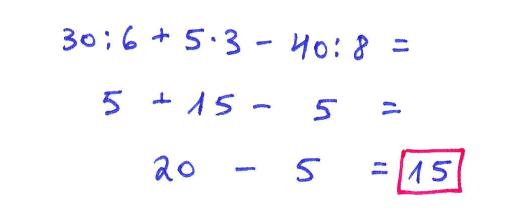 30:6 + 5·3 - 40:8 =
5 + 15 - 5 =
20 - 5 = 15